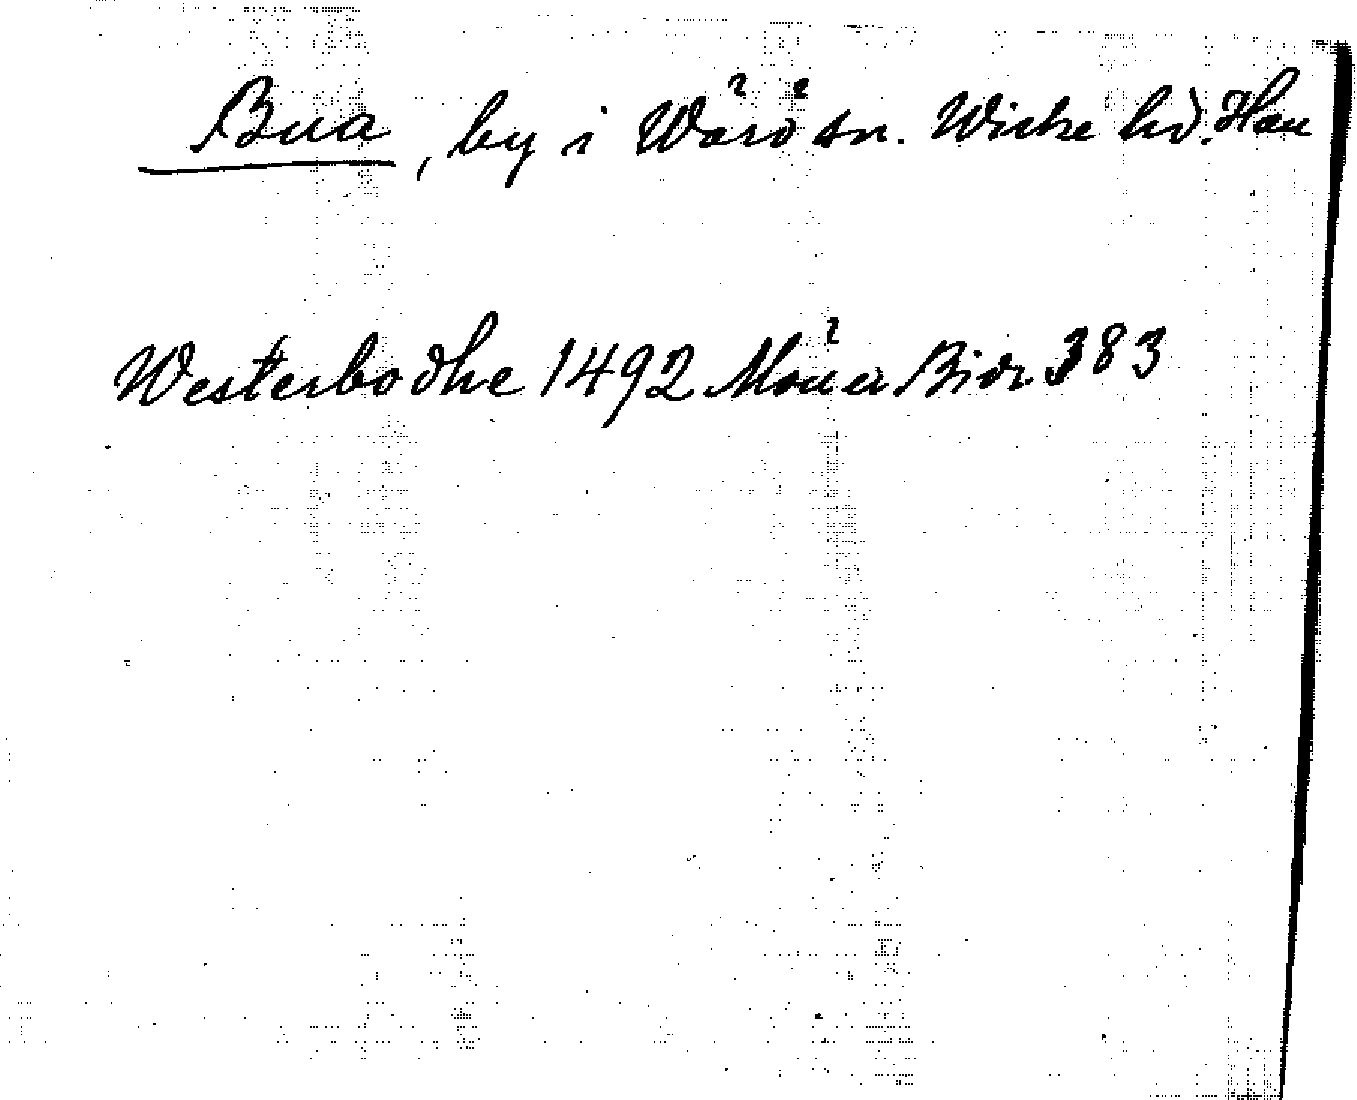 Bua, by i Wärö sn. Wiske hd. Hall
Westerbodhe 1492 Möller Bidr. 383